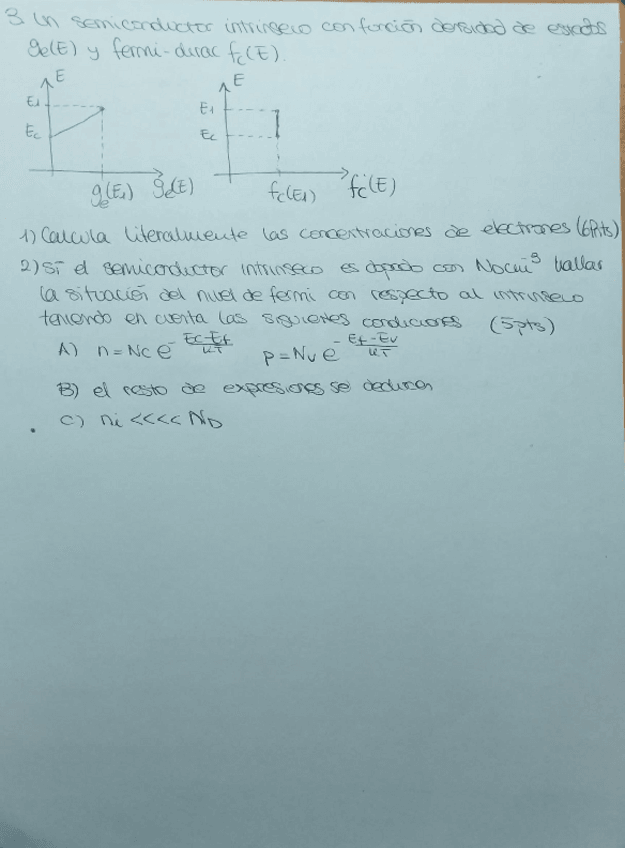 3. Un semiconductor intrínseco con función densidad de estados
ge(E) y fermi-dirac fc(E).
E
E1
Ec
ge(E1) ge(E)
E
E1
Ec
fc(E1) fc(E)
1) Calcula literalmente las concentraciones de electrones (6Pts)
2) Si el semiconductor intrínseco es dopado con ND cm⁻³ hallar
la situación del nivel de fermi con respecto al intrínseco
teniendo en cuenta las siguientes condiciones (5pts)
A) n = Nc e^-(Ec-Ef)/KT p = Nv e^-(Ef-Ev)/KT
B) el resto de expresiones se deducen
C) ni <<<< ND